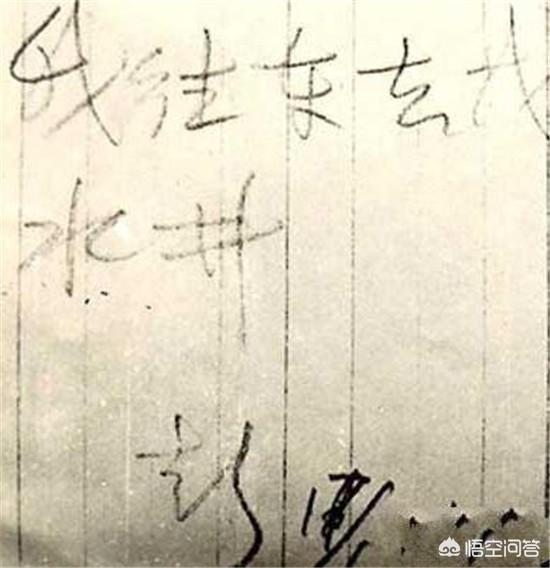 我往东去找
水井
彭
悟空问答